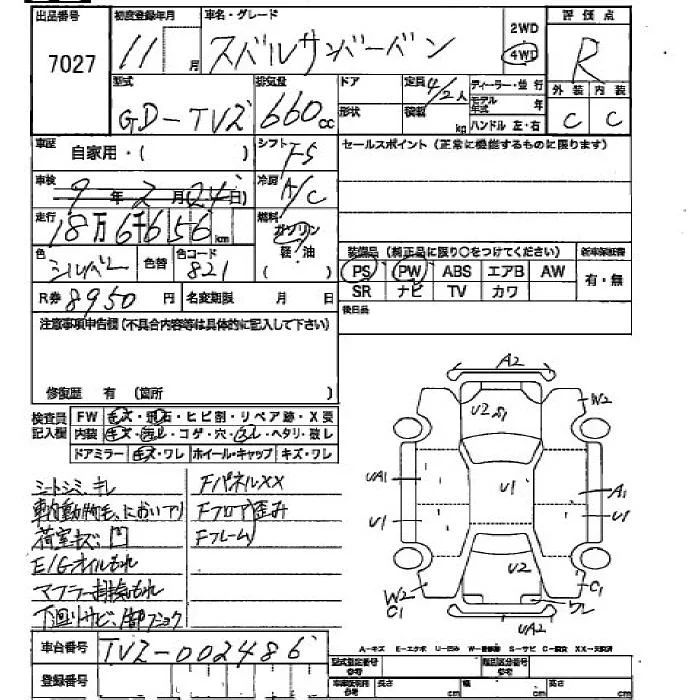 出品番号 初度登録年月 車名・グレード 2WD 評価点
7027 11 月 スバルサンバーバン 4WD R
型式 排気量 ドア 定員 4/2人 ディーラー・並行 外装 内装
GD-TV2 660cc 形状 積載 kg モデル年式 年 C C
ハンドル 左・右
車歴 自家用・( ) シフト F5 セールスポイント(正常に機能するものに限ります)
車検 9年2月24日) 冷房 A/C
走行 18万6千656km 燃料 ガソリン
軽・油
色 シルバー 色替 色コード 821 ( ) 装備品(純正品に限り○をつけてください) 新車保証書
PS PW ABS エアB AW 有・無
R券 8950円 名変期限 月 日 SR ナビ TV カワ
後日品
注意事項申告欄(不具合内容等は具体的に記入して下さい)
修復歴 有 (箇所 )
検査員記入欄 FW キズ・飛石・ヒビ割・リペア跡・X要
内装 キズ・汚レ・コゲ・穴・ズレ・ヘタリ・破レ
ドアミラー キズ・ワレ ホイール・キャップ キズ・ワレ
シートシミ、キレ FパネルXX
車内動物毛、においアリ Fフロア歪み
荷室キズ凹 Fフレーム
E/Gオイルもれ
マフラー排気もれ
下廻りサビ、
A2
U2 W2
UA1 U1 A1
U1 U1
U2 C1
W2 C1 ワレ
UA2
A=キズ E=エクボ U=凹み S=サビ C=腐食 XX=交換済
車台番号 TV2-002486
登録番号 型式指定番号 参考 類別区分番号 参考
参考 長さ cm 幅 cm 高さ cm